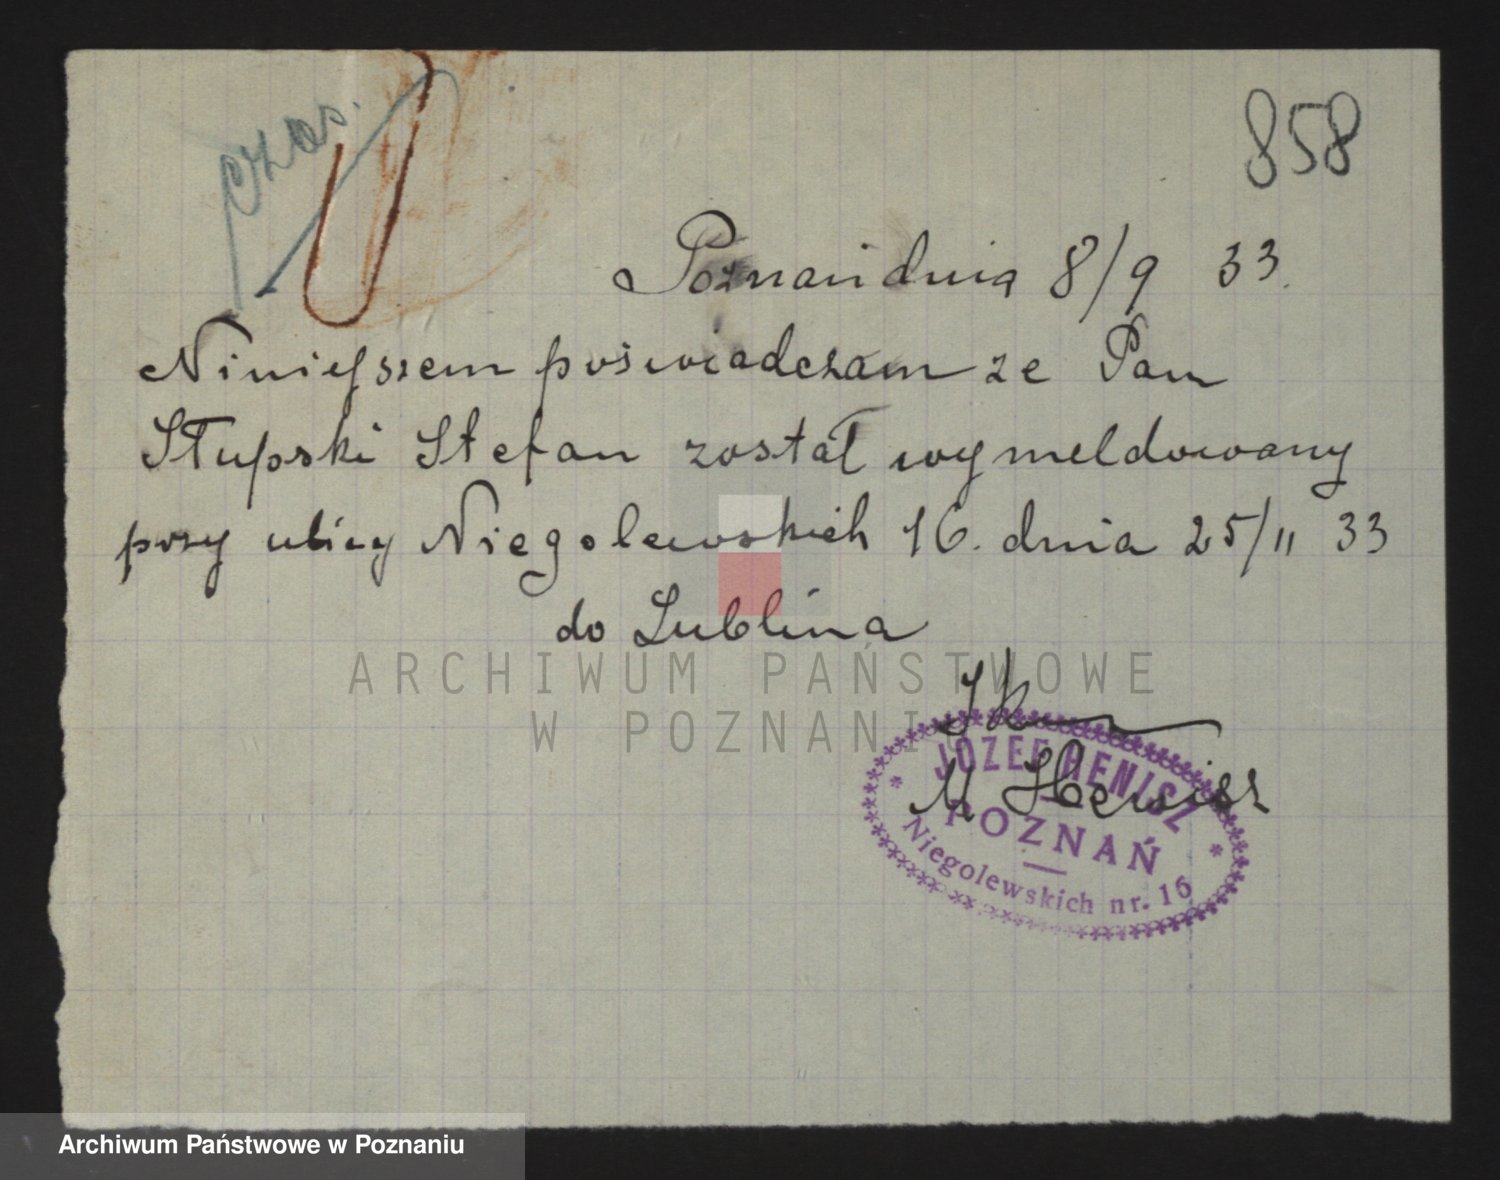 czas.
858
Poznań dnia 8/9 33.
Niniejszem poświadczam ze Pan
Słupski Stefan został wymeldowany
przy ulicy Niegolewskich 16. dnia 25/II 33
do Lublina
ARCHIWUM PAŃSTWOWE
W POZNANIU
M Henisz
JÓZEF HENISZ
POZNAŃ
Niegolewskich nr. 16
Archiwum Państwowe w Poznaniu